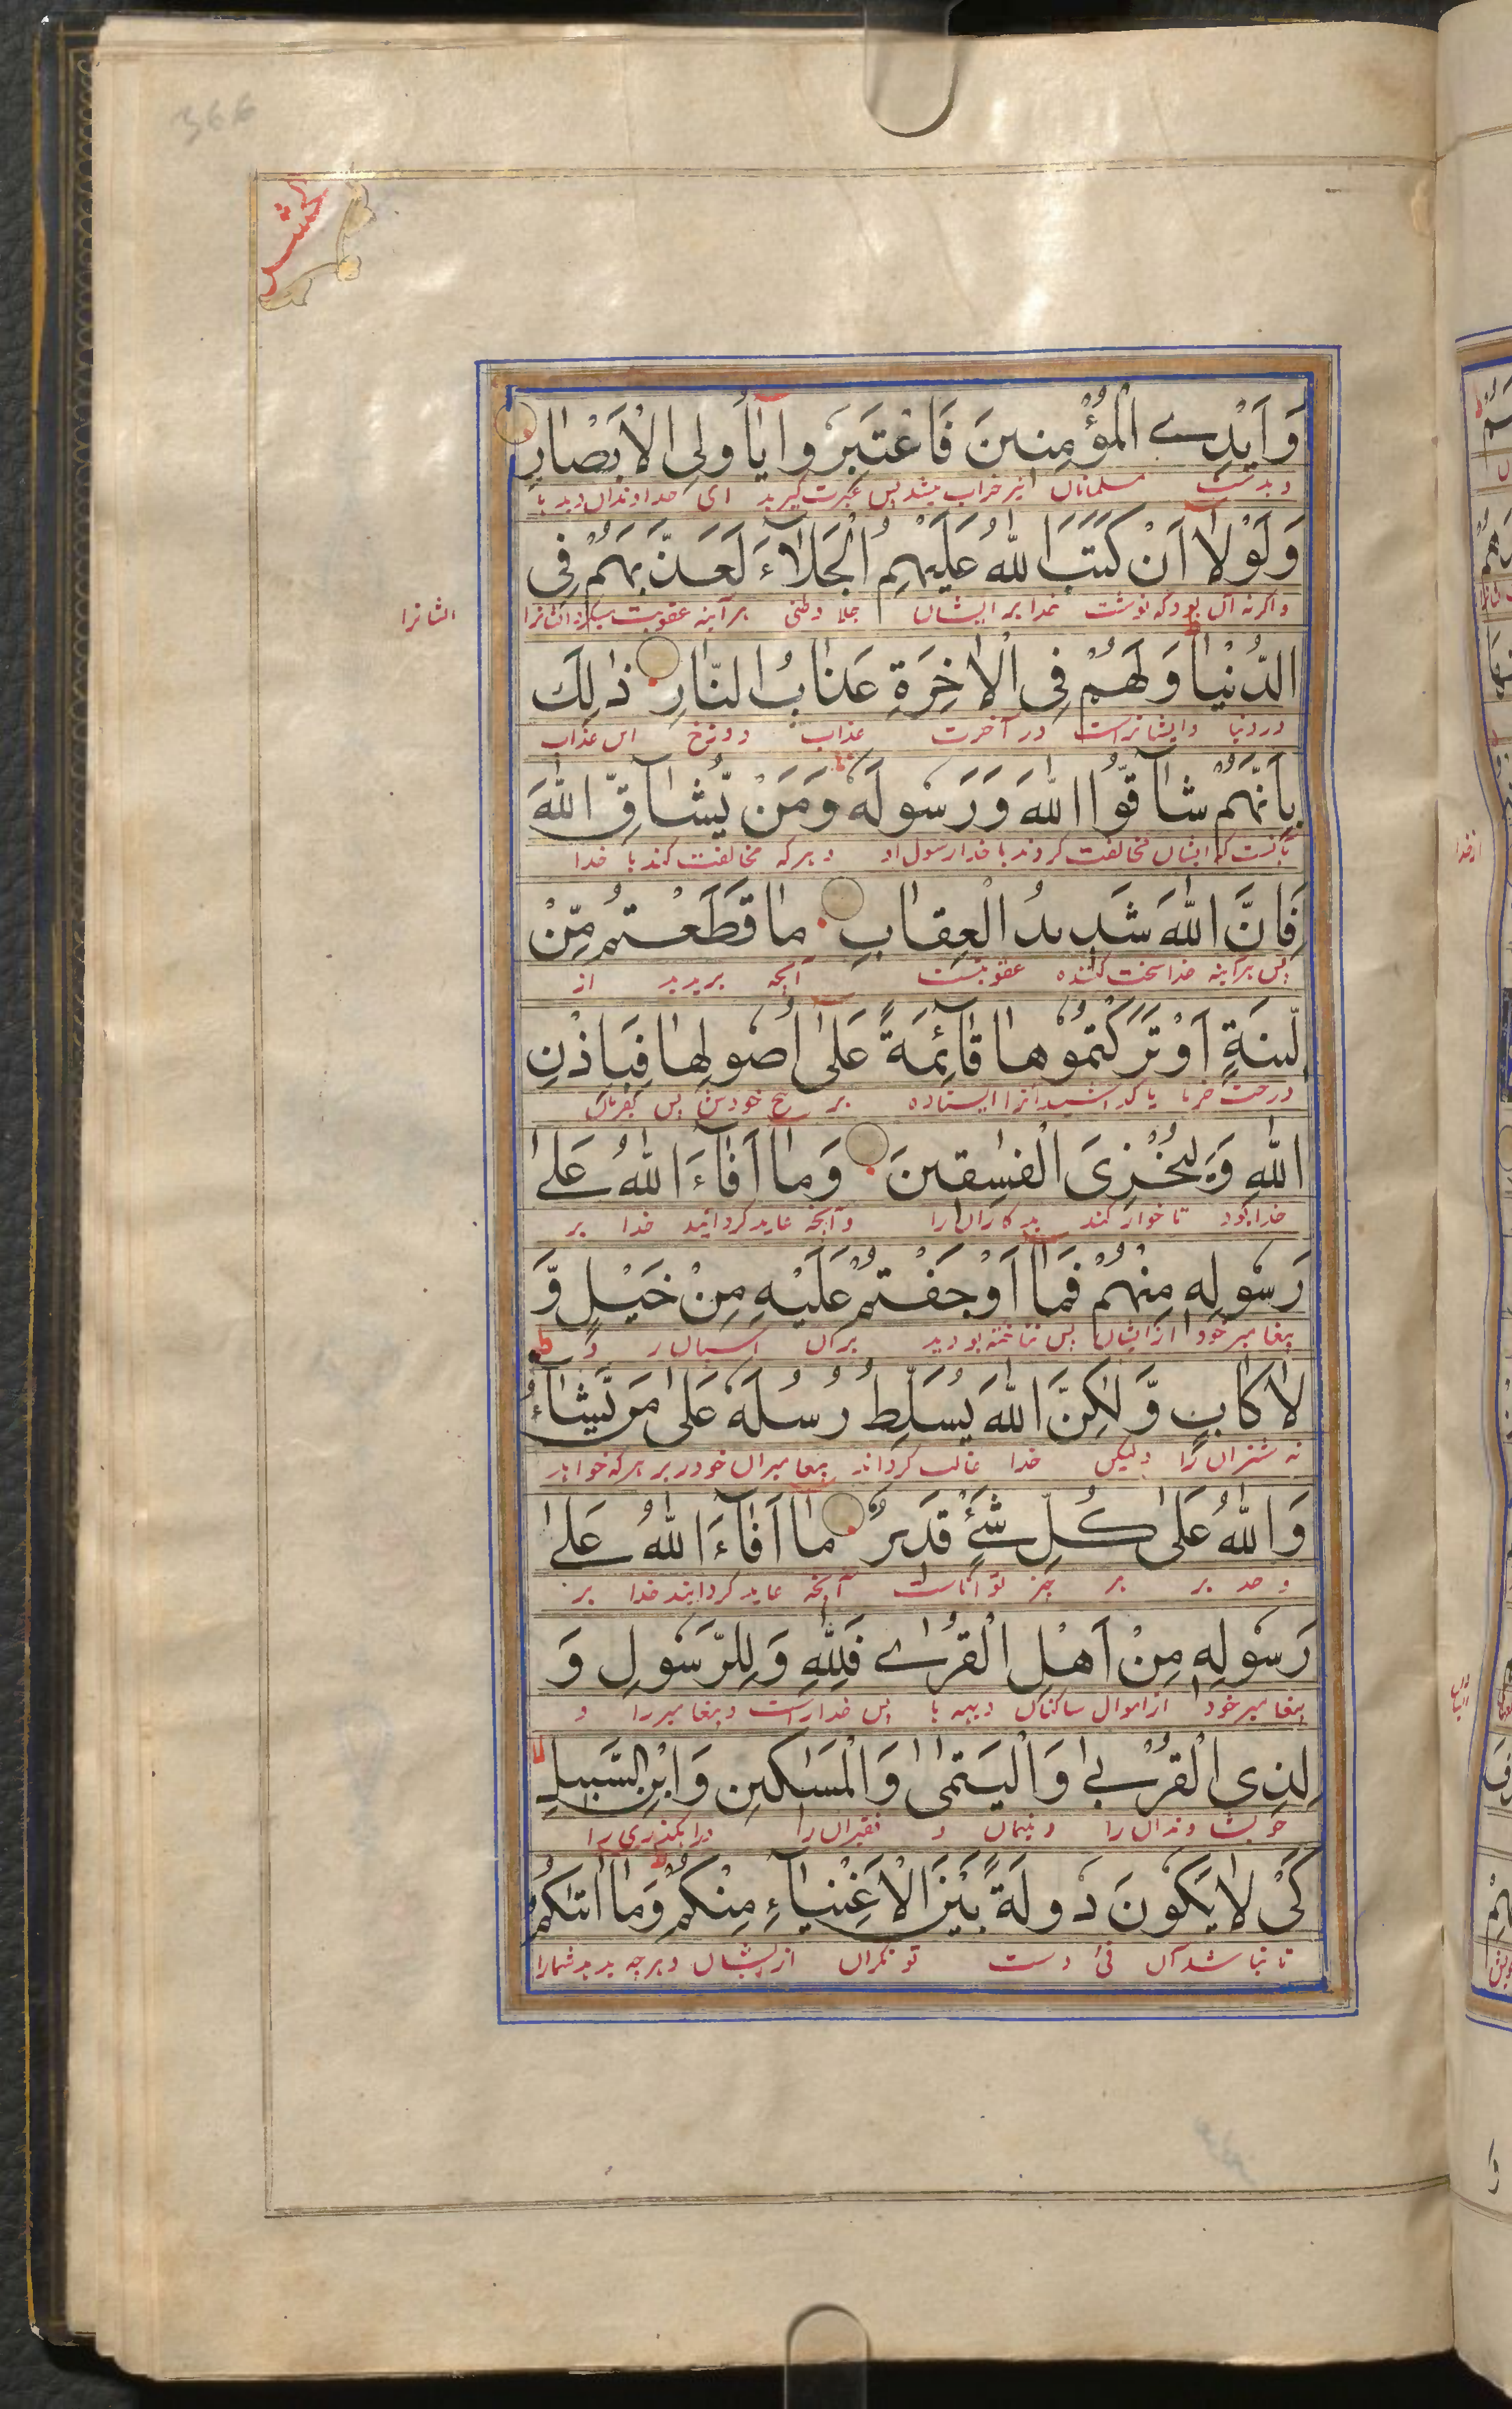 366
الحشر
وَاَيْدِے الْمُؤْمِنِينَ فَاعْتَبِرُوا يٰٓاُولِى الْاَبْصٰارِ
و بدست مسلمانان نیز خراب میشد پس عبرت گیرید ای خداوندان دیدها
وَلَوْلَآ اَنْ كَتَبَ اللّٰهُ عَلَيْهِمُ الْجَلَآءَ لَعَذَّبَهُمْ فِى
و اگر نه آن بود که نوشت خدا بر ایشان جلا وطنی هر آینه عقوبت میکرد ایشانرا
ایشانرا
الدُّنْيٰا وَلَهُمْ فِى الْاٰخِرَةِ عَذٰابُ النّٰارِ ذٰلِكَ
در دنیا و ایشانراست در آخرت عذاب دوزخ این عذاب
بِاَنَّهُمْ شٰآقُّوا اللّٰهَ وَرَسُولَهُ وَمَنْ يُّشٰآقِّ اللّٰهَ
بآنست که ایشان مخالفت کردند با خدا و رسول او و هر که مخالفت کند با خدا
فَاِنَّ اللّٰهَ شَدِيدُ الْعِقٰابِ مٰا قَطَعْتُمْ مِّنْ
پس هر آینه خدا سخت کننده عقوبتست آنچه بریدید از
لِّينَةٍ اَوْ تَرَكْتُمُوهٰا قٰآئِمَةً عَلٰٓى اُصُولِهٰا فَبِاِذْنِ
درخت خرما یا گذاشتید آنرا ایستاده بر بیخ خودش پس بفرمان
اللّٰهِ وَلِيُخْزِىَ الْفٰسِقِينَ وَمٰٓا اَفٰآءَ اللّٰهُ عَلٰى
خدا بود تا خوار کند بدکاران را و آنچه عاید گردانید خدا بر
رَسُولِهِ مِنْهُمْ فَمٰٓا اَوْجَفْتُمْ عَلَيْهِ مِنْ خَيْلٍ وَّ
پیغامبر خود از ایشان پس نتاخته بودید بران اسپان را و
لٰا كٰابٍ وَّلٰكِنَّ اللّٰهَ يُسَلِّطُ رُسُلَهُ عَلٰى مَنْ يَّشٰآءُ
نه شتران را ولیکن خدا غالب گرداند پیغامبران خود را بر هر که خواهد
وَاللّٰهُ عَلٰى كُلِّ شَےْءٍ قَدِيرٌ مٰٓا اَفٰآءَ اللّٰهُ عَلٰى
و خدا بر هر چیز تواناست آنچه عاید گردانید خدا بر
رَسُولِهِ مِنْ اَهْلِ الْقُرٰے فَلِلّٰهِ وَلِلرَّسُولِ وَ
پیغامبر خود از اموال ساکنان دیهها پس خداراست و پیغامبر را و
لِذِى الْقُرْبٰى وَالْيَتٰمٰى وَالْمَسٰكِينِ وَابْنِ السَّبِيلِ
خویشاوندان را و یتیمان و فقیران را و راهگذری را
كَىْ لٰا يَكُونَ دُولَةً بَيْنَ الْاَغْنِيٰآءِ مِنْكُمْ وَمٰٓا اٰتٰىكُمُ
تا نباشد آن فئ دست توانگران از ایشان و هر چه بدهد شمارا